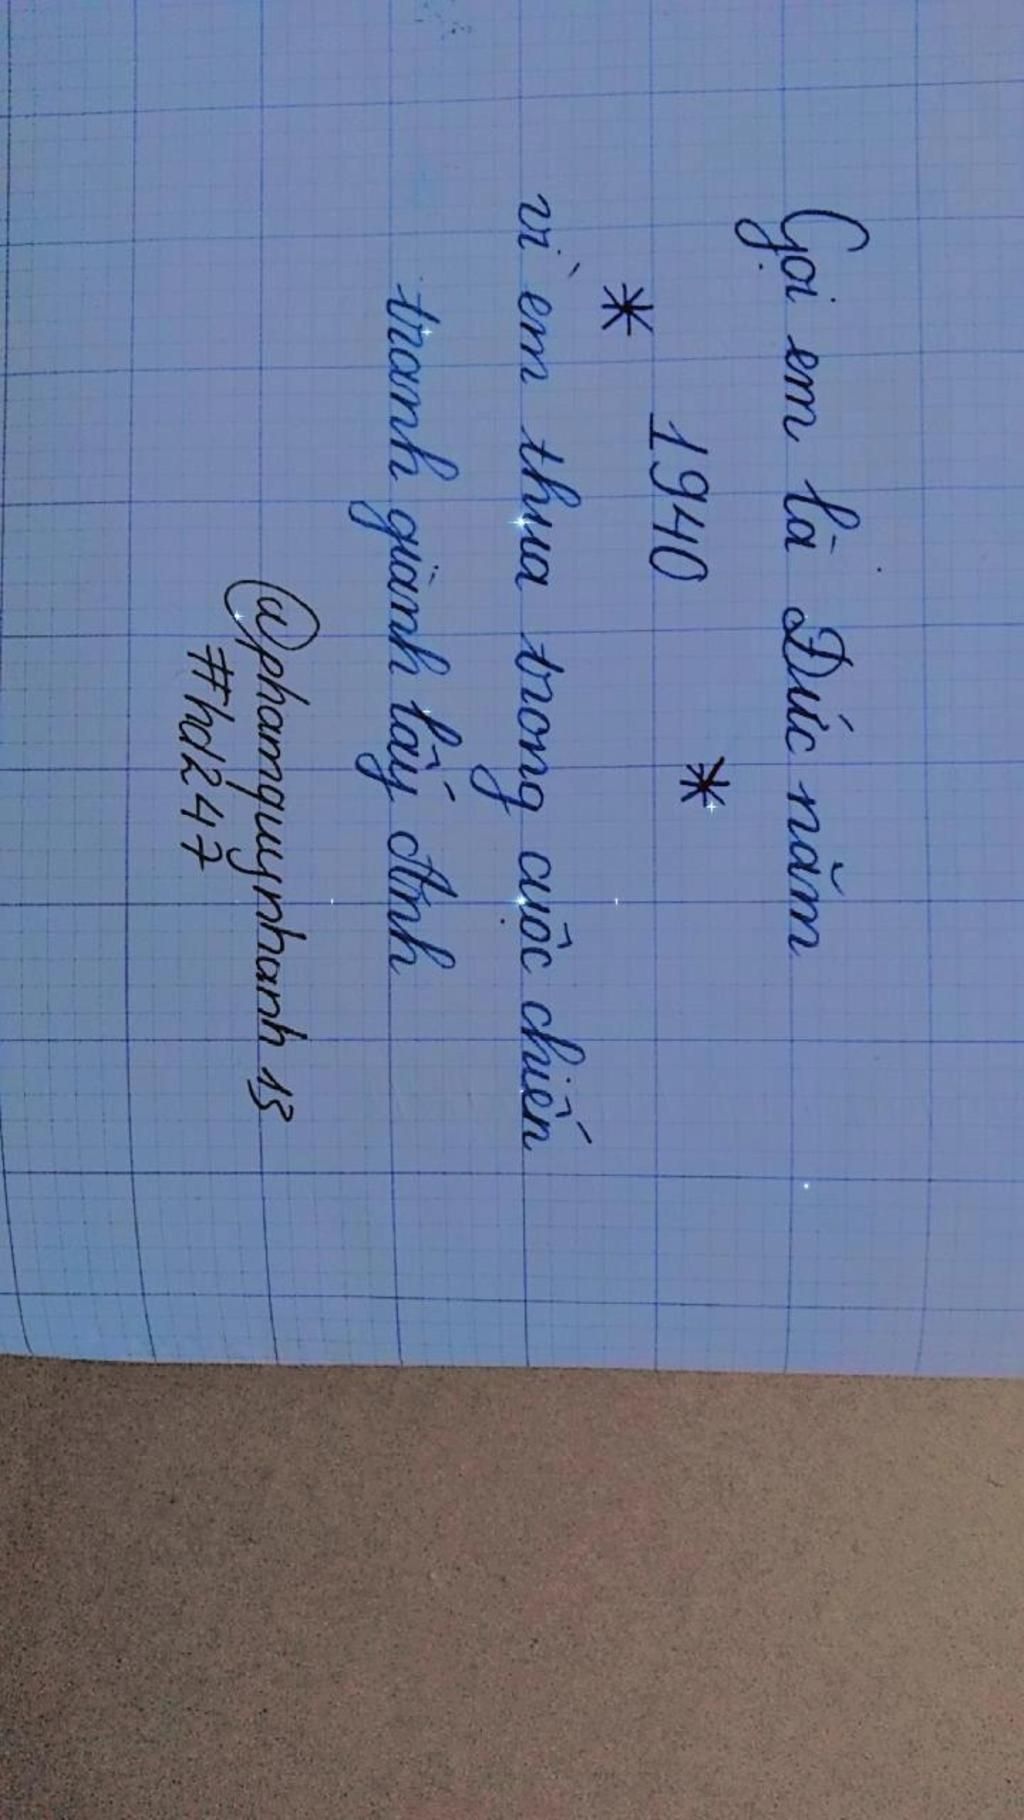 Gọi em là Đức năm
* 1940 *
vì em thua trong cuộc chiến
tranh giành lấy Anh
@phamquynhanh13
#hd247